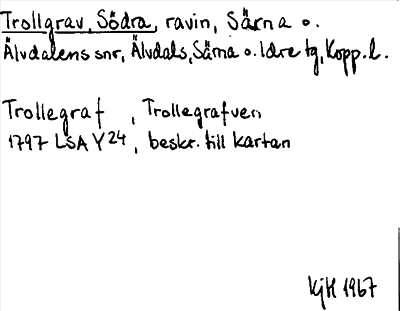 Trollgrav, Södra, ravin, Särna o.
Älvdalens snr, Älvdals, Särna o. Idre tg, Kopp. l.
Trollegraf , Trollegrafven
1797 LSA Y24, beskr. till kartan
KjH 1967